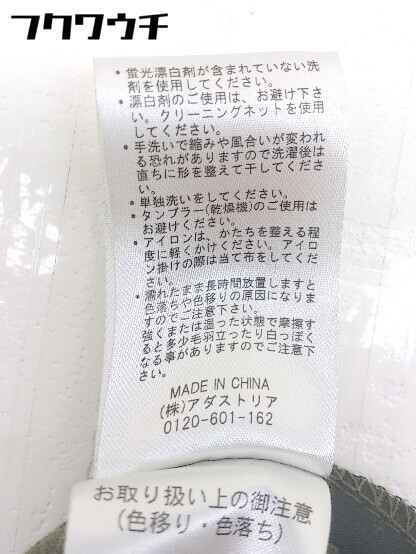 フクワウチ
・蛍光漂白剤が含まれていない洗
剤を使用してください。
・漂白剤のご使用は、お避け下さ
い。クリーニングネットを使用
してください。
・手洗いで縮みや風合いが変われ
る恐れがありますので洗濯後は
直ちに形を整えて干してくださ
い。
・単独洗いをしてください。
・タンブラー(乾燥機)のご使用は
お避けください。
・アイロンは、かたちを整える程
度に軽くかけください。アイロ
ン掛けの際は当て布をしてくだ
さい。
・濡れたまま長時間放置しますと
色落ちや色移りの原因になりま
すのでご注意下さい。
強くまたは湿った状態で摩擦す
ると多少毛羽立ったり白っぽく
なる事がありますのでご注意下
さい。
MADE IN CHINA
(株)アダストリア
0120-601-162
お取り扱い上の御注意
(色移り・色落ち)